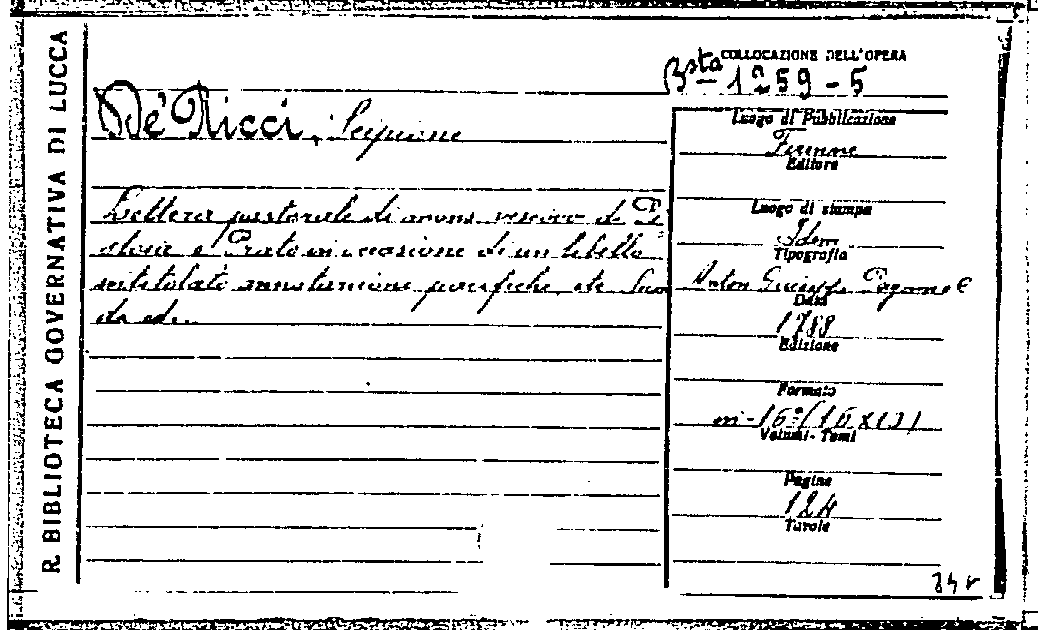 R. BIBLIOTECA GOVERNATIVA DI LUCCA
COLLOCAZIONE DELL'OPERA
Bsta 1259-5
De' Ricci, Scipione
Lettera pastorale di vescovo di Pi
stoia e Prato in occasione di un libello
intitolato annotazioni pacifiche etc
da ed.
Luogo di Pubblicazione
Firenze
Editore
Luogo di stampa
Idem
Tipografia
Anton Giuseppe Pagani e
Data
1788
Edizione
Formato
in-16°
Volumi - Tomi
Pagine
124
Tavole